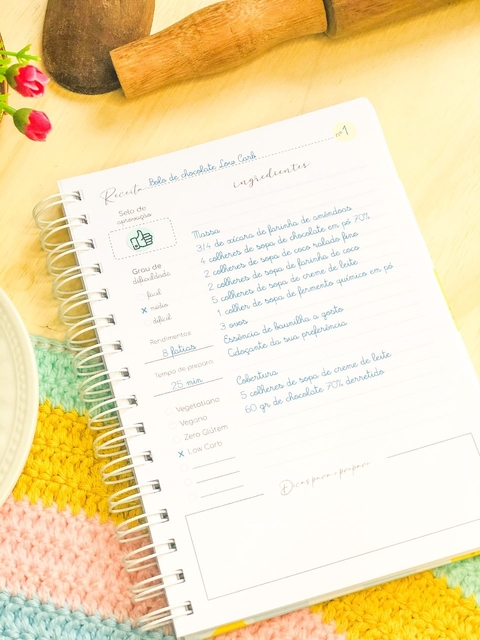 Receita Bolo de chocolate Low Carb
nº 1
Selo de
aprovação
Grau de
dificuldade
fácil
x médio
difícil
Rendimento:
8 fatias
Tempo de preparo:
25 min
Vegetariano
Vegano
Zero Glúten
x Low Carb
ingredientes
Massa
3/4 de xícara de farinha de amêndoas
4 colheres de sopa de chocolate em pó 70%
2 colheres de sopa de coco ralado fino
2 colheres de sopa de farinha de coco
5 colheres de sopa de creme de leite
1 colher de sopa de fermento químico em pó
3 ovos
Essência de baunilha a gosto
Adoçante da sua preferência
Cobertura
5 colheres de sopa de creme de leite
60 gr de chocolate 70% derretido
Dicas para o preparo